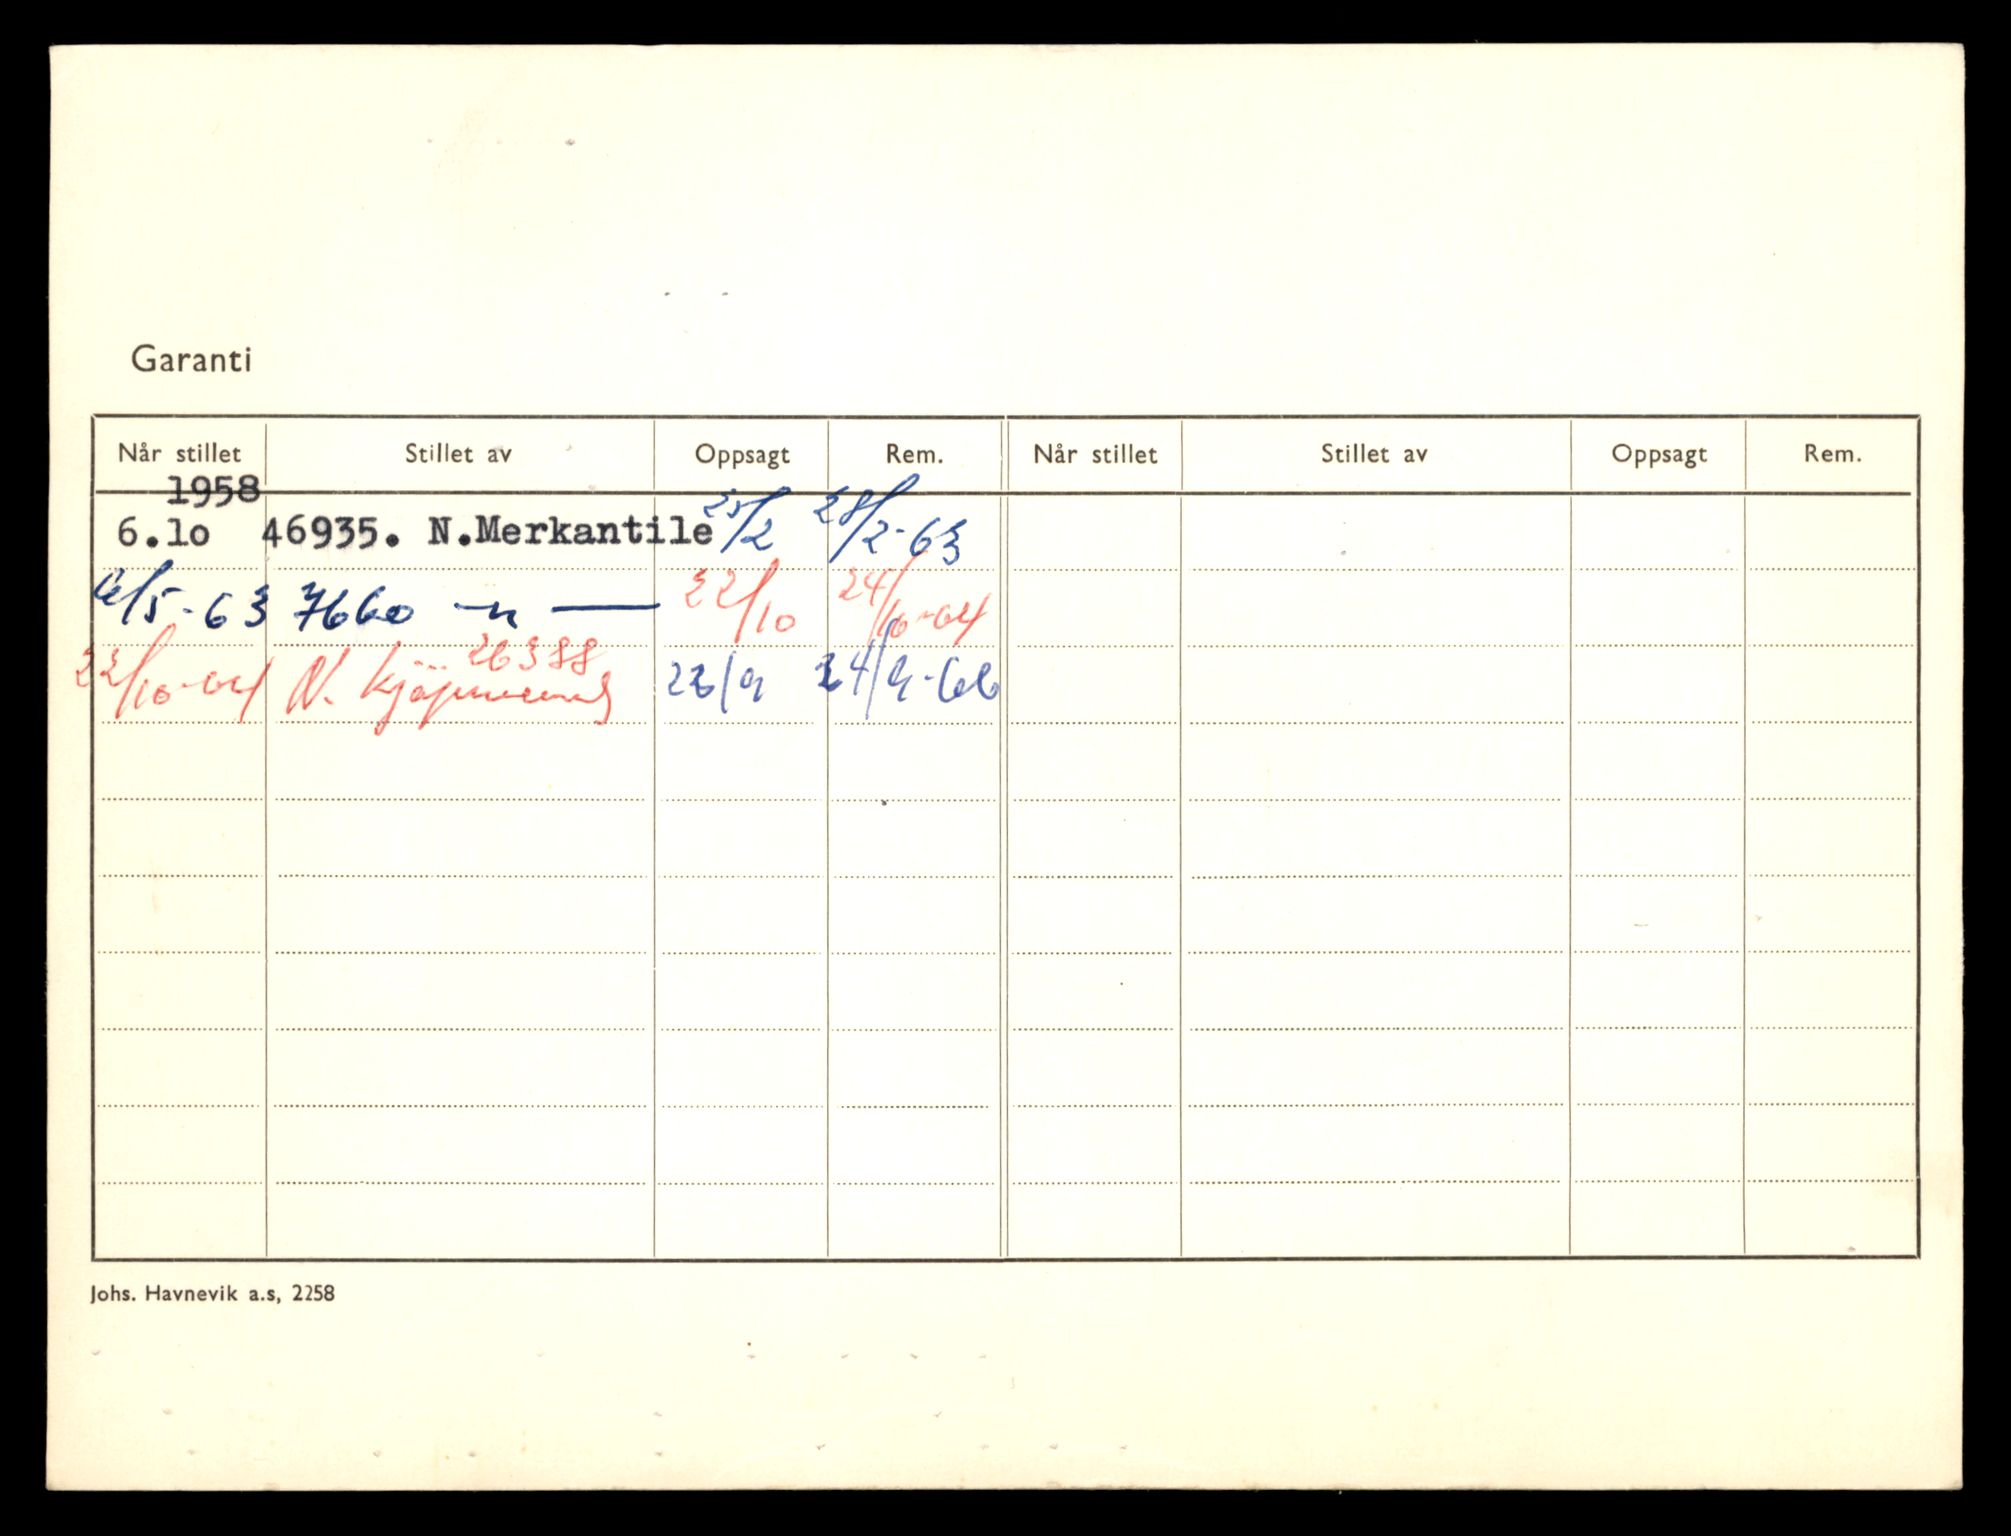 Garanti
Når stillet Stillet av Oppsagt Rem. Når stillet Stillet av Oppsagt Rem.
1958
6.10 46935. N.Merkantile 25/2 28/2-63
/5-63 7660 —n— 22/10 24/10-64
26388
22/10-64 N. Kjøpmenns 22/9 24/9-66
Johs. Havnevik a.s, 2258